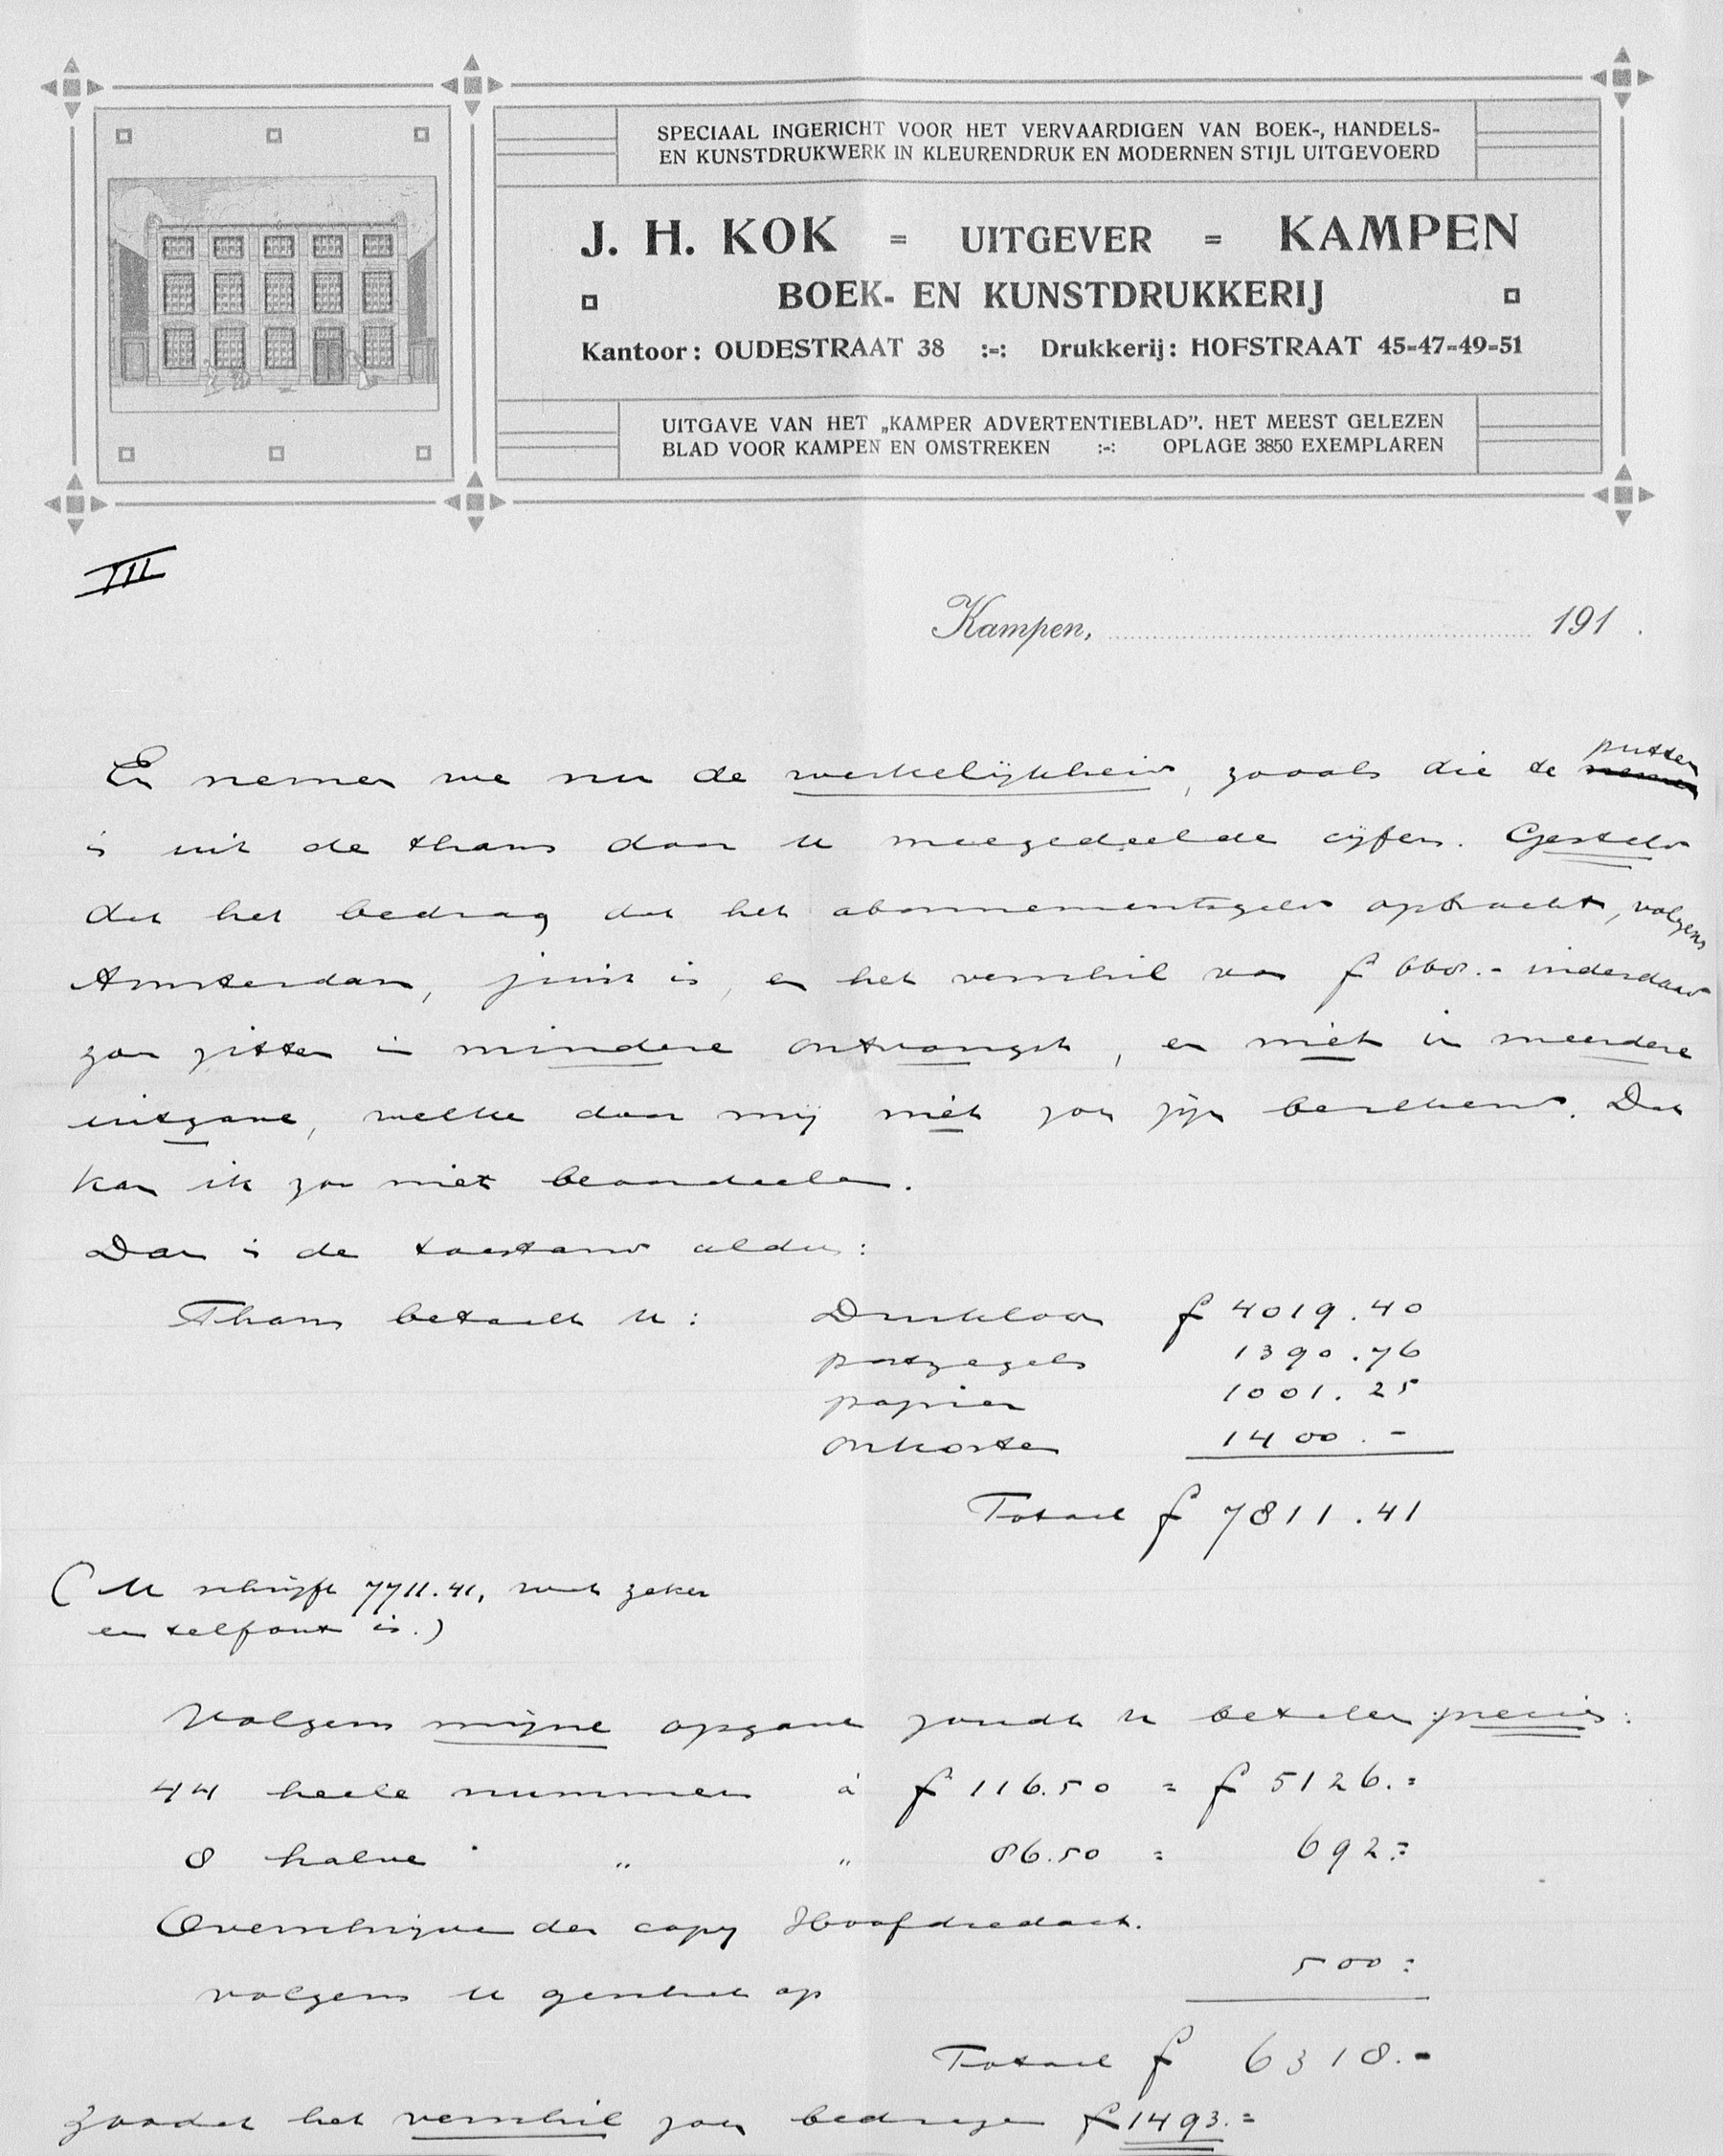 SPECIAAL INGERICHT VOOR HET VERVAARDIGEN VAN BOEK-, HANDELS-
EN KUNSTDRUKWERK IN KLEURENDRUK EN MODERNEN STIJL UITGEVOERD
J. H. KOK = UITGEVER = KAMPEN
BOEK- EN KUNSTDRUKKERIJ
Kantoor: OUDESTRAAT 38 :-: Drukkerij: HOFSTRAAT 45-47-49-51
UITGAVE VAN HET „KAMPER ADVERTENTIEBLAD”. HET MEEST GELEZEN
BLAD VOOR KAMPEN EN OMSTREKEN :-: OPLAGE 3850 EXEMPLAREN
III
Kampen, 191 .
putten
En nemen we nu de werkelijkheid, zooals die te
is uit de thans door U meegedeelde cijfers. Gesteld
dat het bedrag dat het abonnementsgeld opbracht, volgens
Amsterdam, juist is, en het verschil van f 660.- inderdaad
zou zitten in mindere ontvangst, en niet in meerdere
uitgave, welke door mij niet zou zijn berekend. Dat
kan ik zoo niet beoordeelen.
Dan is de toestand aldus:
Thans betaalt U: Drukloon f 4019.40
postzegels 1390.76
papier 1001.25
onkosten 1400.-
Totaal f 7811.41
(U schrijft 7711.41, wat zeker
een telfout is.)
Volgens mijne opgave zoudt U betalen precies:
44 heele nummers à f 116.50 = f 5126.=
8 halve " " 86.50 = 692.=
Overschrijven der copy Hoofdredact.
500=
volgens U geschat op
Totaal f 6318.-
zoodat het verschil zou bedragen f 1493.=